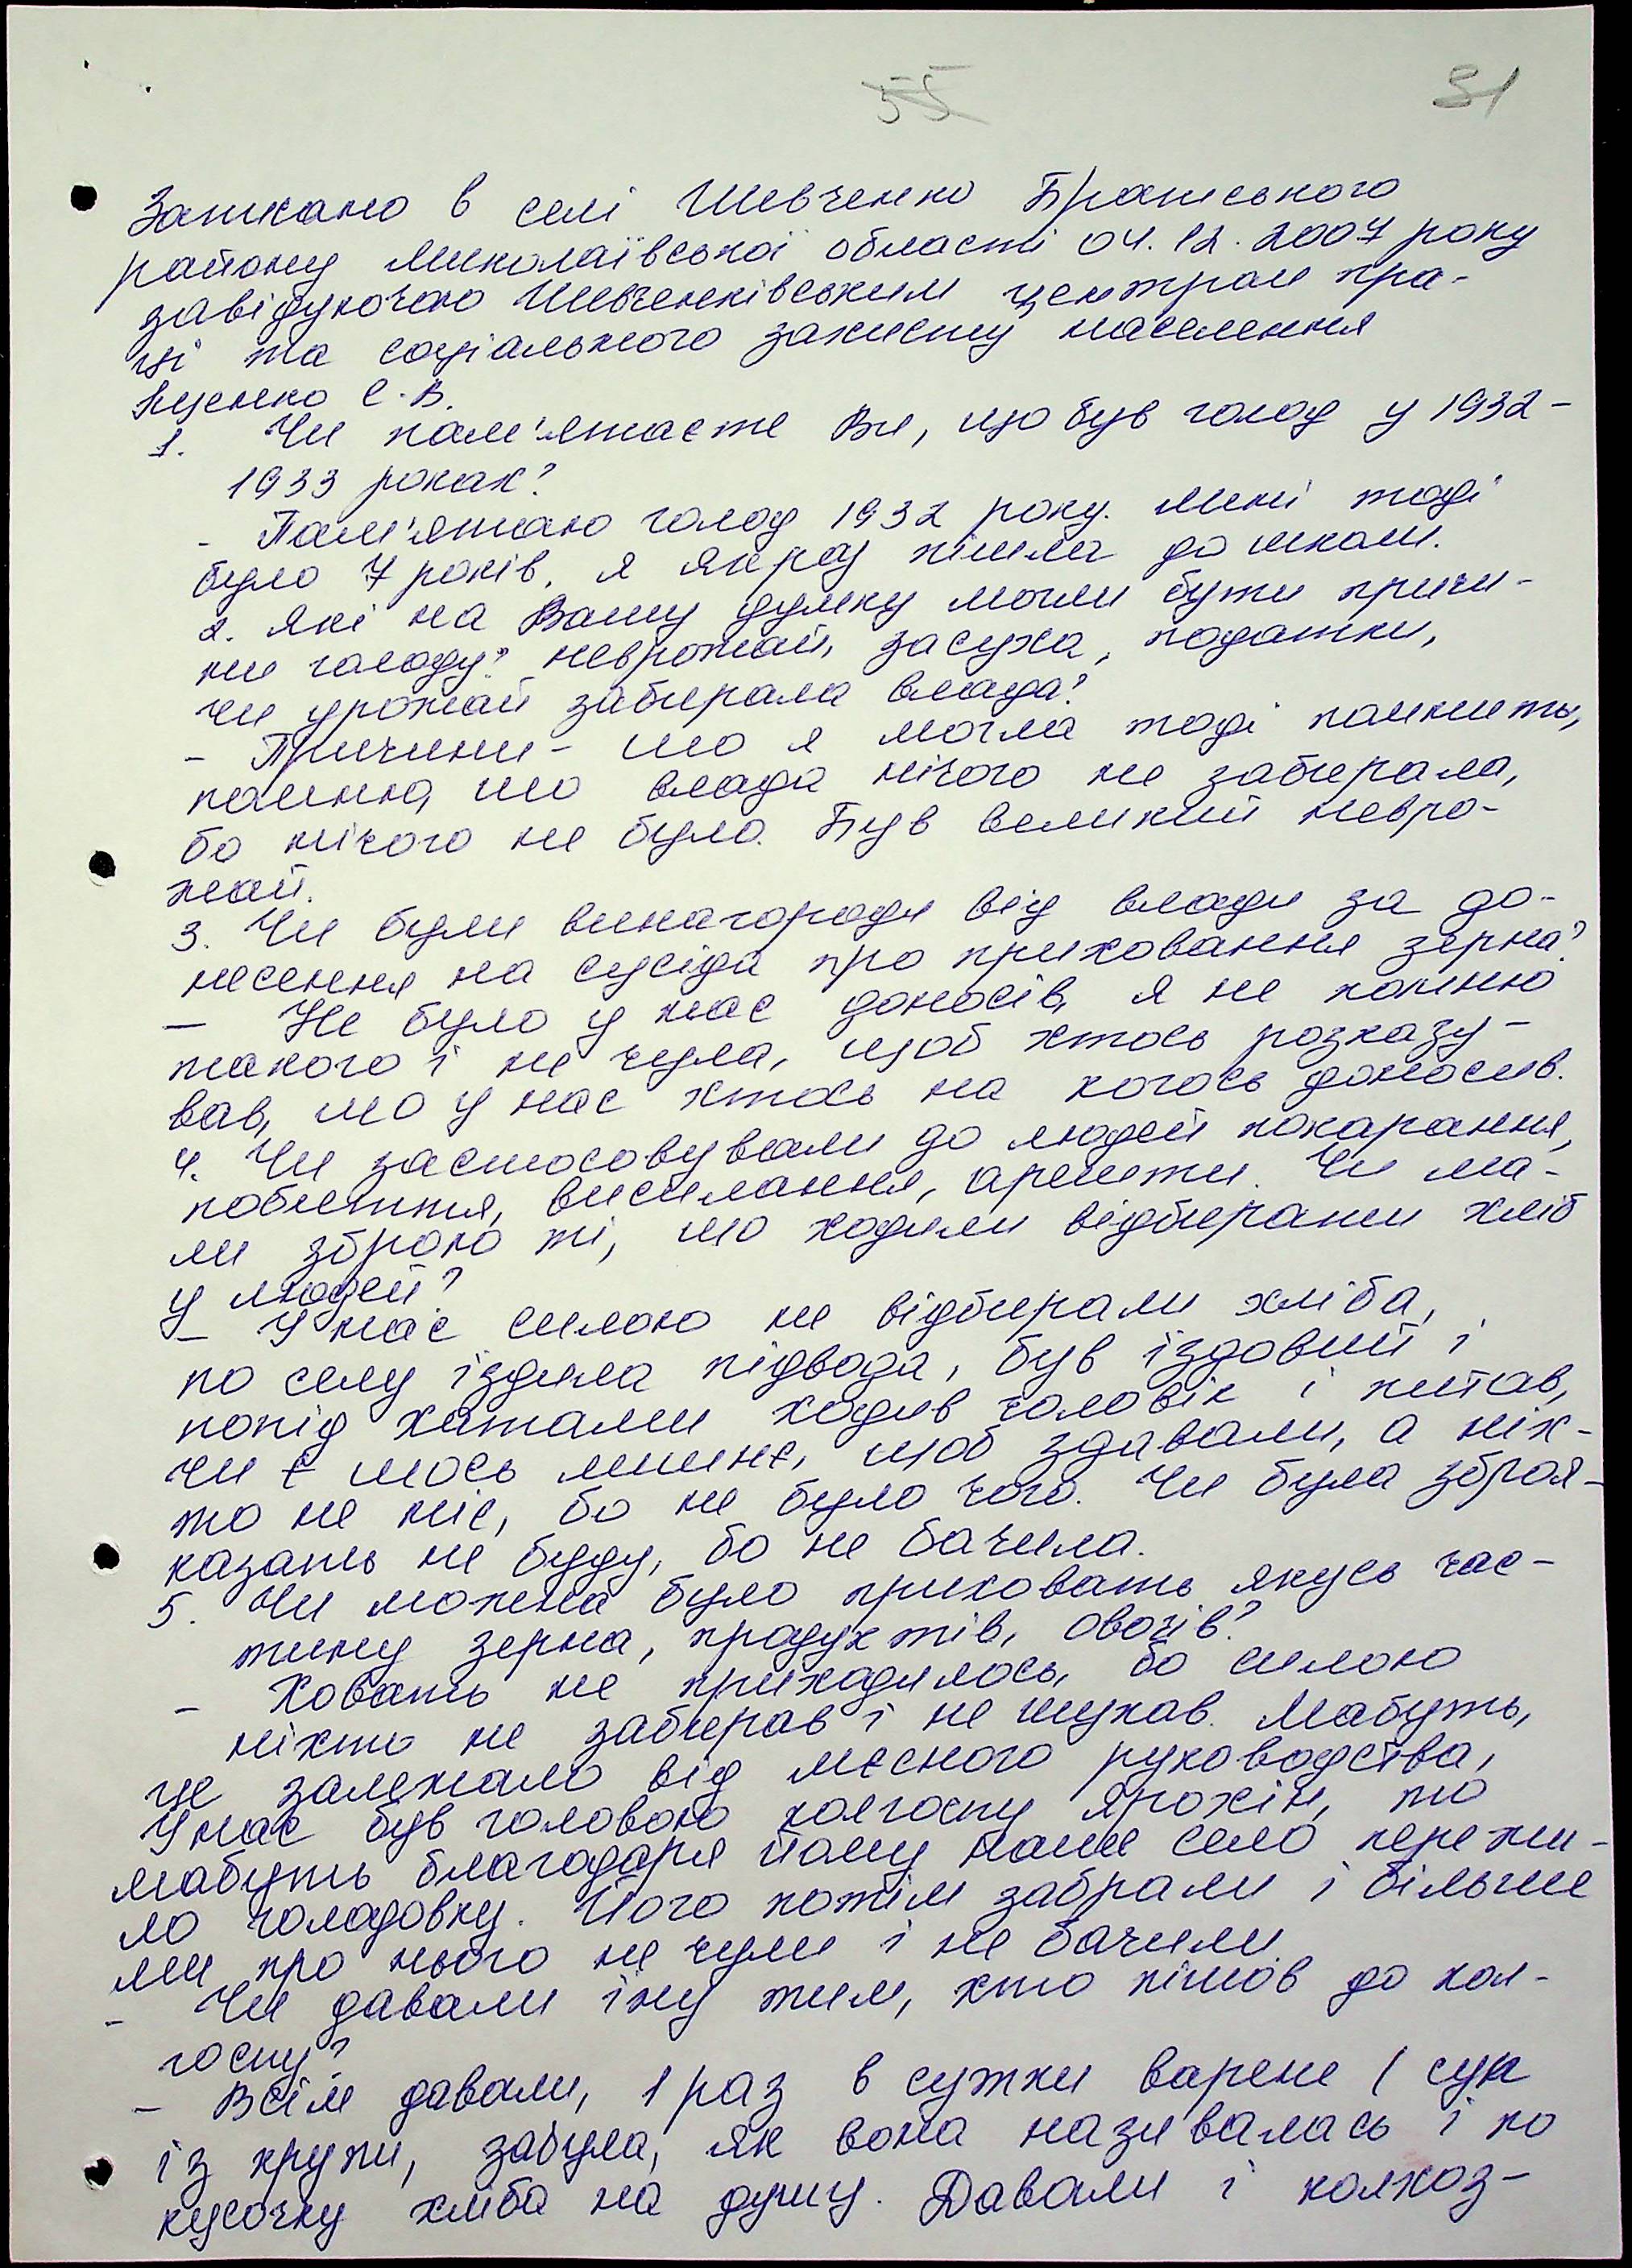 55 31
Записано в селі Шевченко Братського
району Миколаївської області 04.12.2007 року
завідуючою Шевченківським центром пра-
ці та соціального захисту населення
Яценко С.В.
1. Чи пам'ятаєте Ви, що був голод у 1932-
1933 роках?
- Пам'ятаю голод 1932 року. Мині тоді
було 7 років, я якраз пішла до школи.
2. Які на Вашу думку могли бути причи-
ни голоду? неврожай, засуха, податки,
чи урожай забирала влада?
- Причини - шо я могла тоді помнить,
помню, шо влада нічого не забирала,
бо нічого не було. Був великий невро-
жай.
3. Чи були винагороди від влади за до-
несення на сусіда про приховання зерна?
- Не було у нас доносів, я не помню
такого і не чула, щоб хтось розказу-
вав, шо у нас хтось на когось доносив.
4. Чи застосовували до людей покарання,
побиття, висилання, арешти. Чи ма-
ли зброю ті, шо ходили відбирати хліб
у людей?
- У нас силою не відбирали хліба,
по селу їздила підвода, був їздовий і
попід хатами ходив чоловік і питав,
чи є шось лишнє, щоб здавали, а ніх-
то не ніс, бо не було чого. Чи була зброя-
казать не буду, бо не бачила.
5. Чи можна було приховать якусь час-
тину зерна, продуктів, овочів?
- Ховать не приходилось, бо силою
ніхто не забирав і не шукав. Мабуть,
це залежало від мєсного руководства,
У нас був головою колгоспу Ярохін, то
мабуть благодаря йому наше село пережи-
ло голодовку. Його потім забрали і більше
ми про нього не чули і не бачили.
- Чи давали їжу тим, хто пішов до кол-
госпу?
- Всім давали, 1 раз в сутки варене ( суп
із крупи, забула, як вона називалась і по
кусочку хліба на душу. Давали і колхоз-